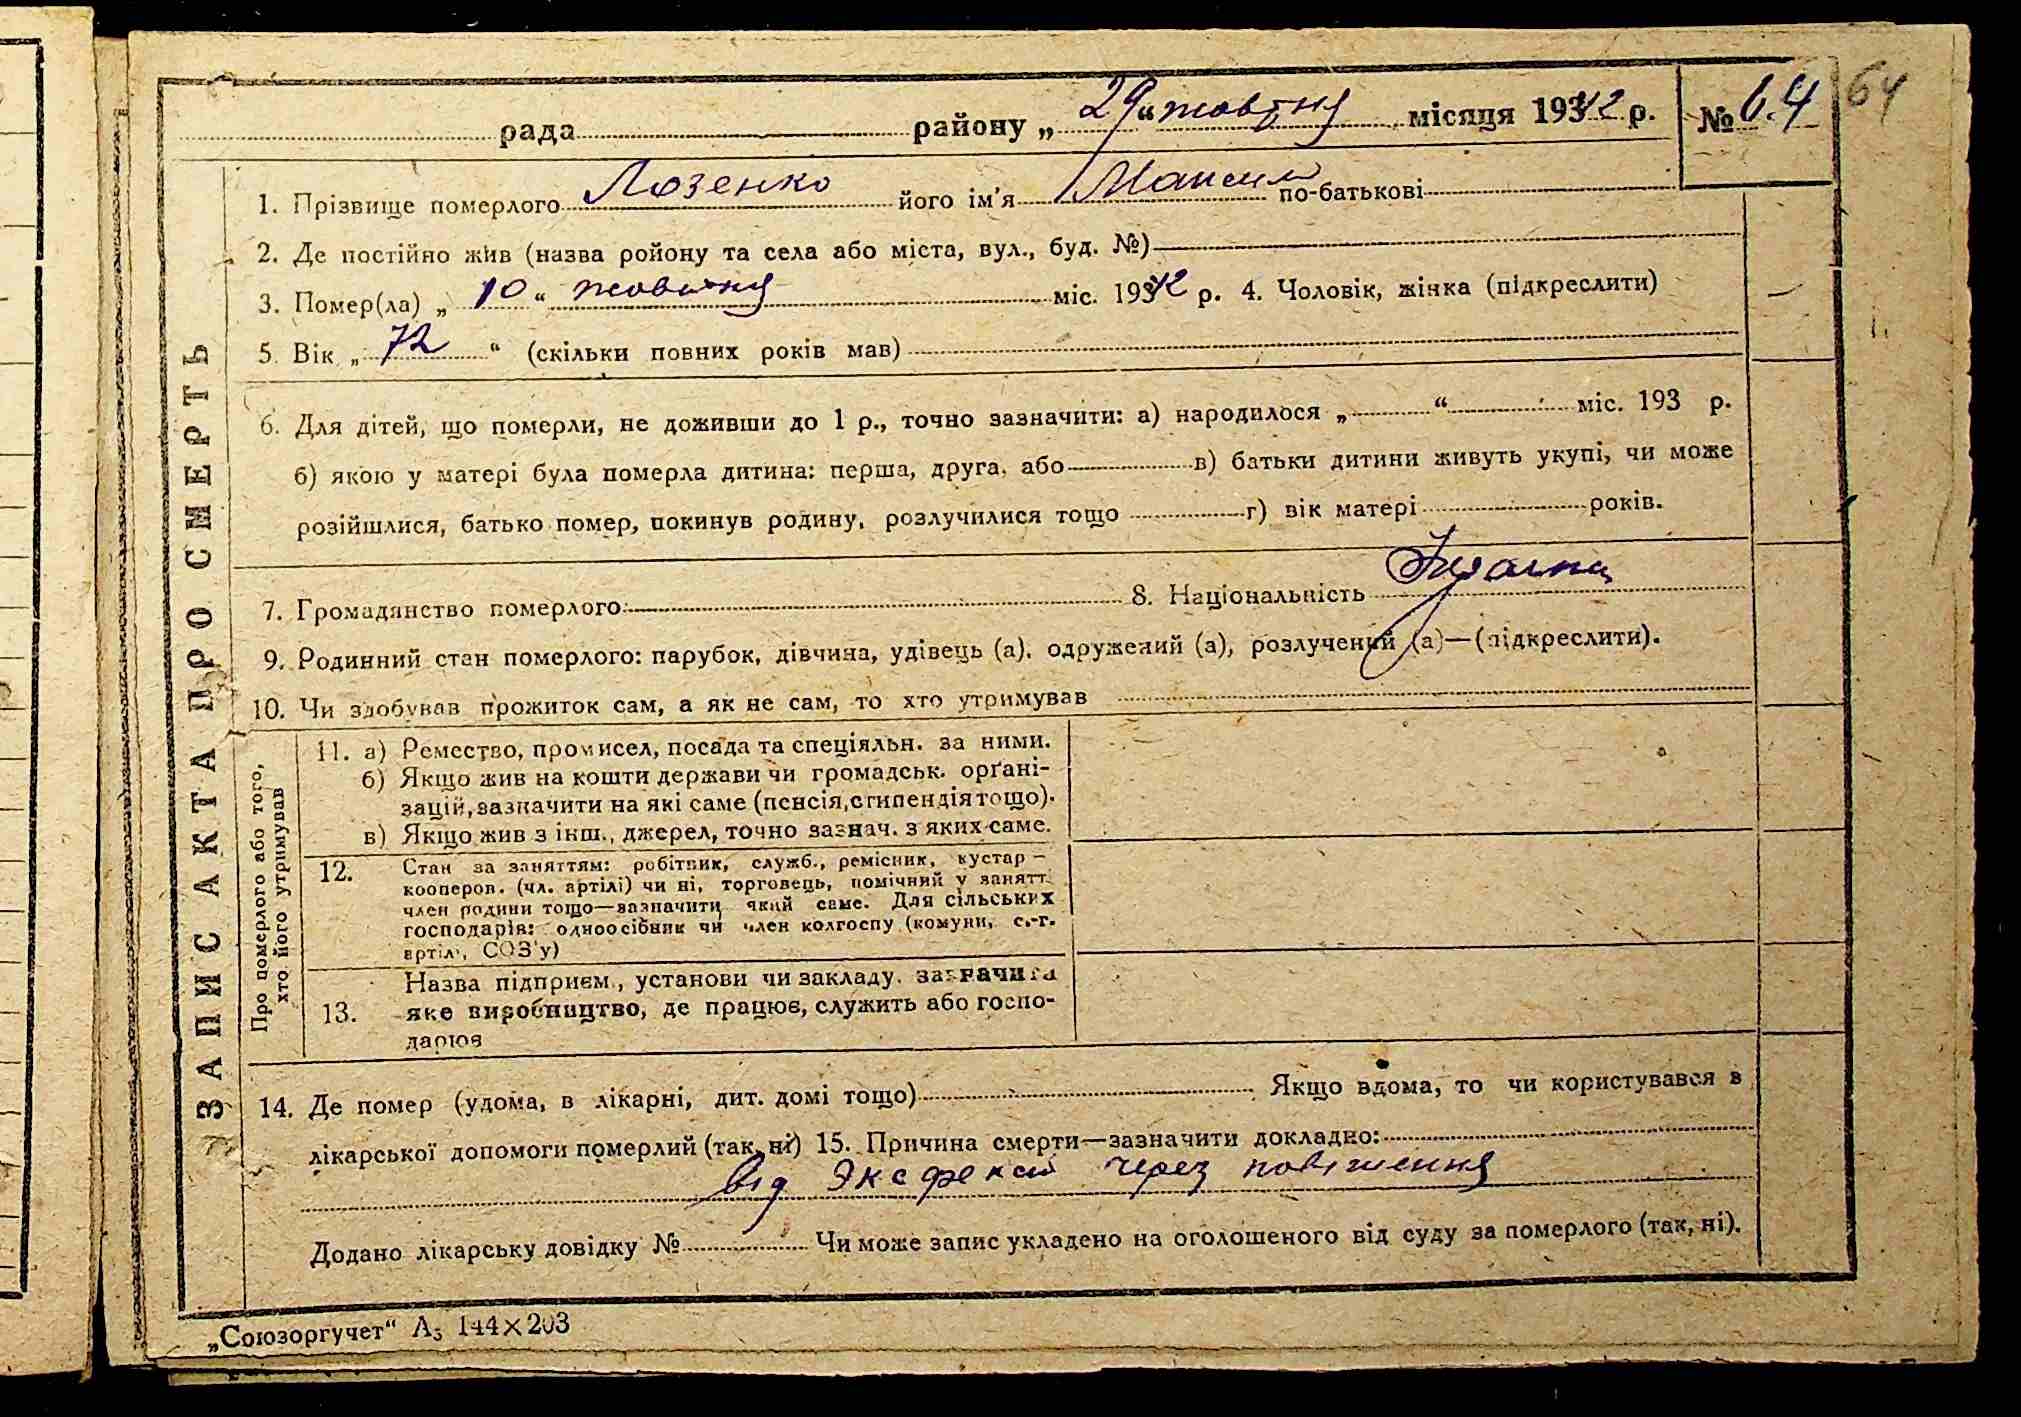 рада району „ 29 “ жовтня місяця 1942 р. № 64 64
1. Прізвище померлого Лозенко його ім'я Максим по-батькові
2. Де постійно жив (назва ройону та села або міста, вул., буд. №)
3. Помер(ла) „ 10 “ жовтня міс. 1942 р. 4. Чоловік, жінка (підкреслити)
5. Вік „ 72 “ (скільки повних років мав)
6. Для дітей, що померли, не доживши до 1 р., точно зазначити: а) народилося „ “ міс. 193 р.
б) якою у матері була померла дитина: перша, друга, або в) батьки дитини живуть укупі, чи може
розійшлися, батько помер, покинув родину, розлучилися тощо г) вік матері років.
7. Громадянство померлого 8. Національність
9. Родинний стан померлого: парубок, дівчина, удівець (а), одружений (а), розлучений (а)—(підкреслити).
10. Чи здобував прожиток сам, а як не сам, то хто утримував
ЗАПИС АКТА ПРО СМЕРТЬ
Про померлого або того,
хто його утримував
11. а) Ремество, промисел, посада та спеціяльн. за ними.
б) Якщо жив на кошти держави чи громадськ. органі-
зацій, зазначити на які саме (пенсія, стипендія тощо).
в) Якщо жив з інш., джерел, точно зазнач. з яких саме.
12. Стан за заняттям: робітник, служб., ремісник, кустар —
кооперов. (чл. артілі) чи ні, торговець, помічний у занятт.
член родини тощо—зазначити, який саме. Для сільських
господарів: одноосібник чи член колгоспу (комуни, с.-г.
артіл., СОЗ'у)
13. Назва підприєм., установи чи закладу. зазначити
яке виробництво, де працює, служить або госпо-
дарює
14. Де помер (удома, в лікарні, дит. домі тощо) Якщо вдома, то чи користувався в
лікарської допомоги померлий (так, ні) 15. Причина смерти—зазначити докладно:
від через повішення
Додано лікарську довідку № Чи може запис укладено на оголошеного від суду за померлого (так, ні).
„Союзоргучет“ А₅ 144×203